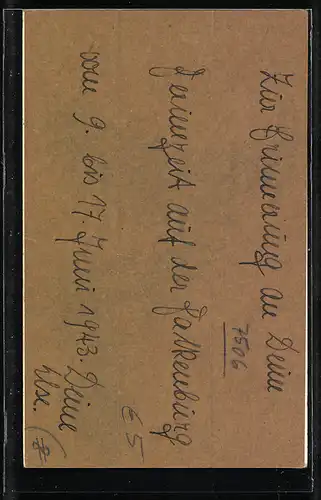 Zur Erinnerung an Deine
Ferienzeit auf der Falkenburg
vom 9. bis 17. Juni 1943. Deine
Else.
7506
€ 5